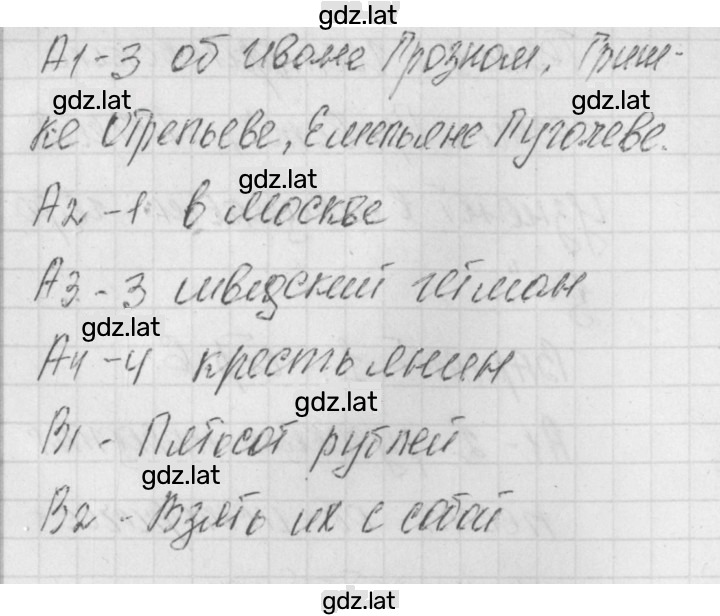 gdz.lat
А1-3 об Иване Грозном, Гриш-
gdz.lat gdz.lat
ке Отрепьеве, Емельяне Пугачеве.
gdz.lat
А2-1. в Москве
А3-3 шведский гетман
gdz.lat
А4-4 крестьянин
gdz.lat
В1 - Пятьсот рублей
gdz.lat
В2 - Взять их с собой
gdz.lat